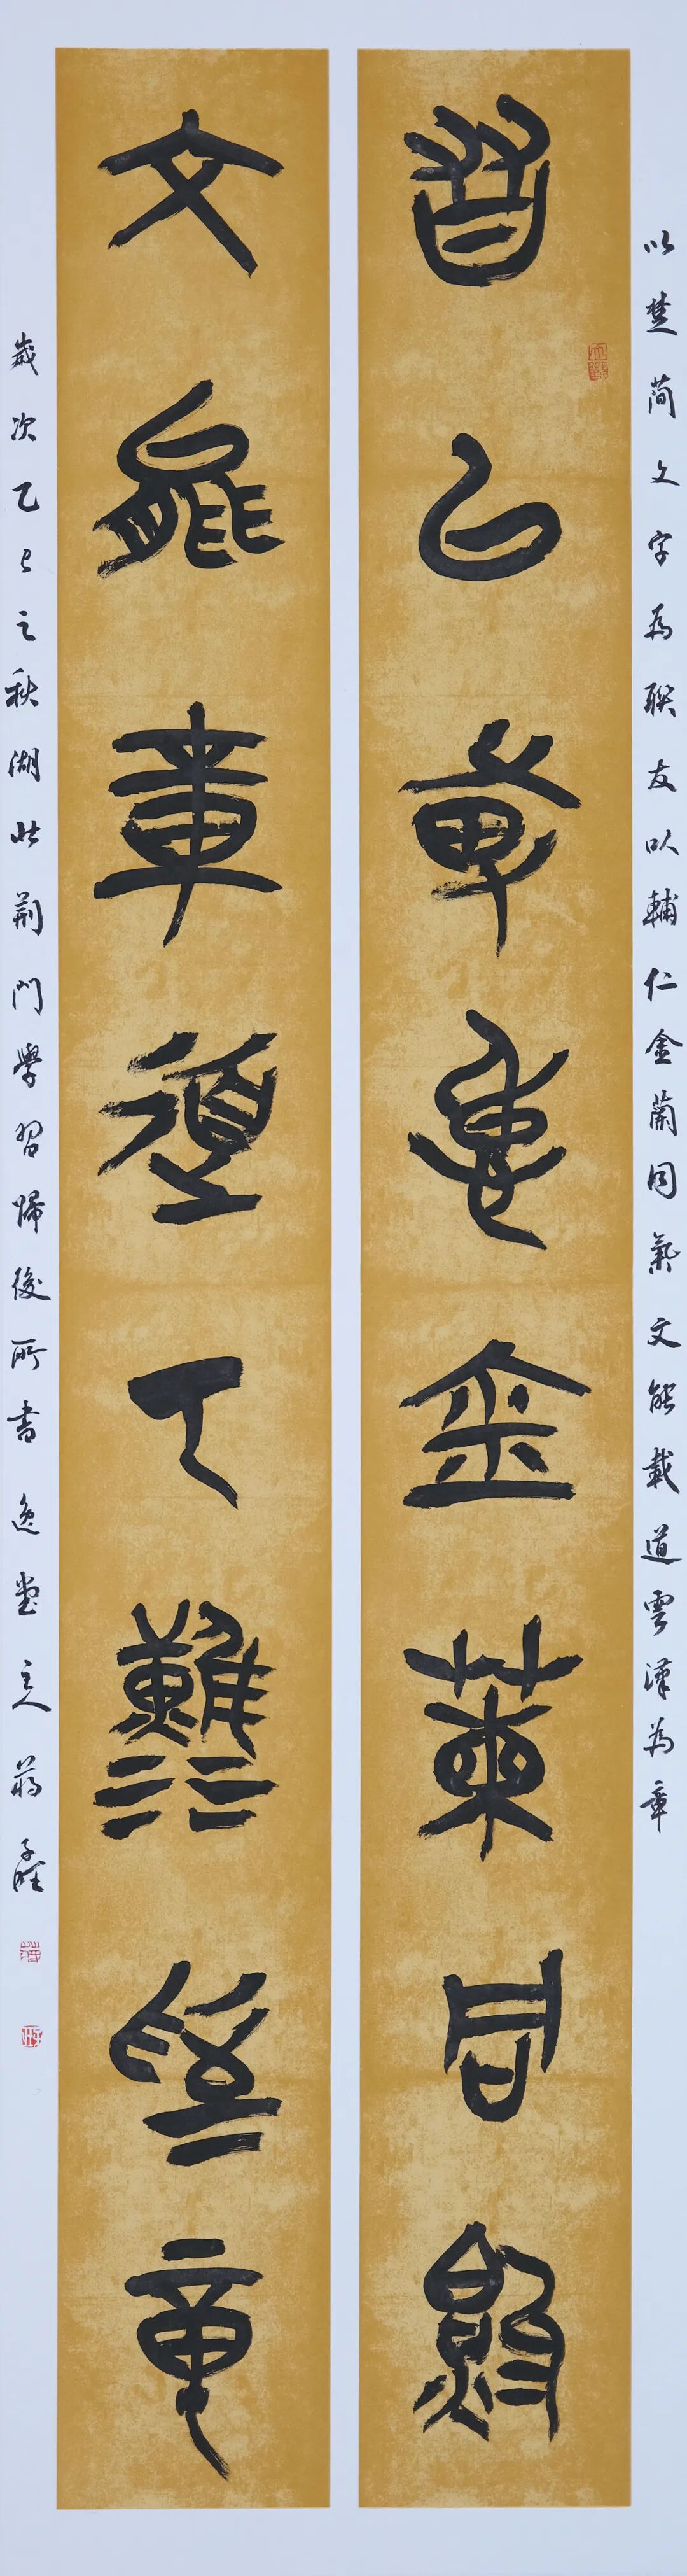 以楚简文字为联友以辅仁金兰同气文能载道云汉为章
友以輔仁金蘭同氣
文能載道雲漢為章
歲次乙巳之秋湖北荆門學習歸後所書逸堂主人蔣子